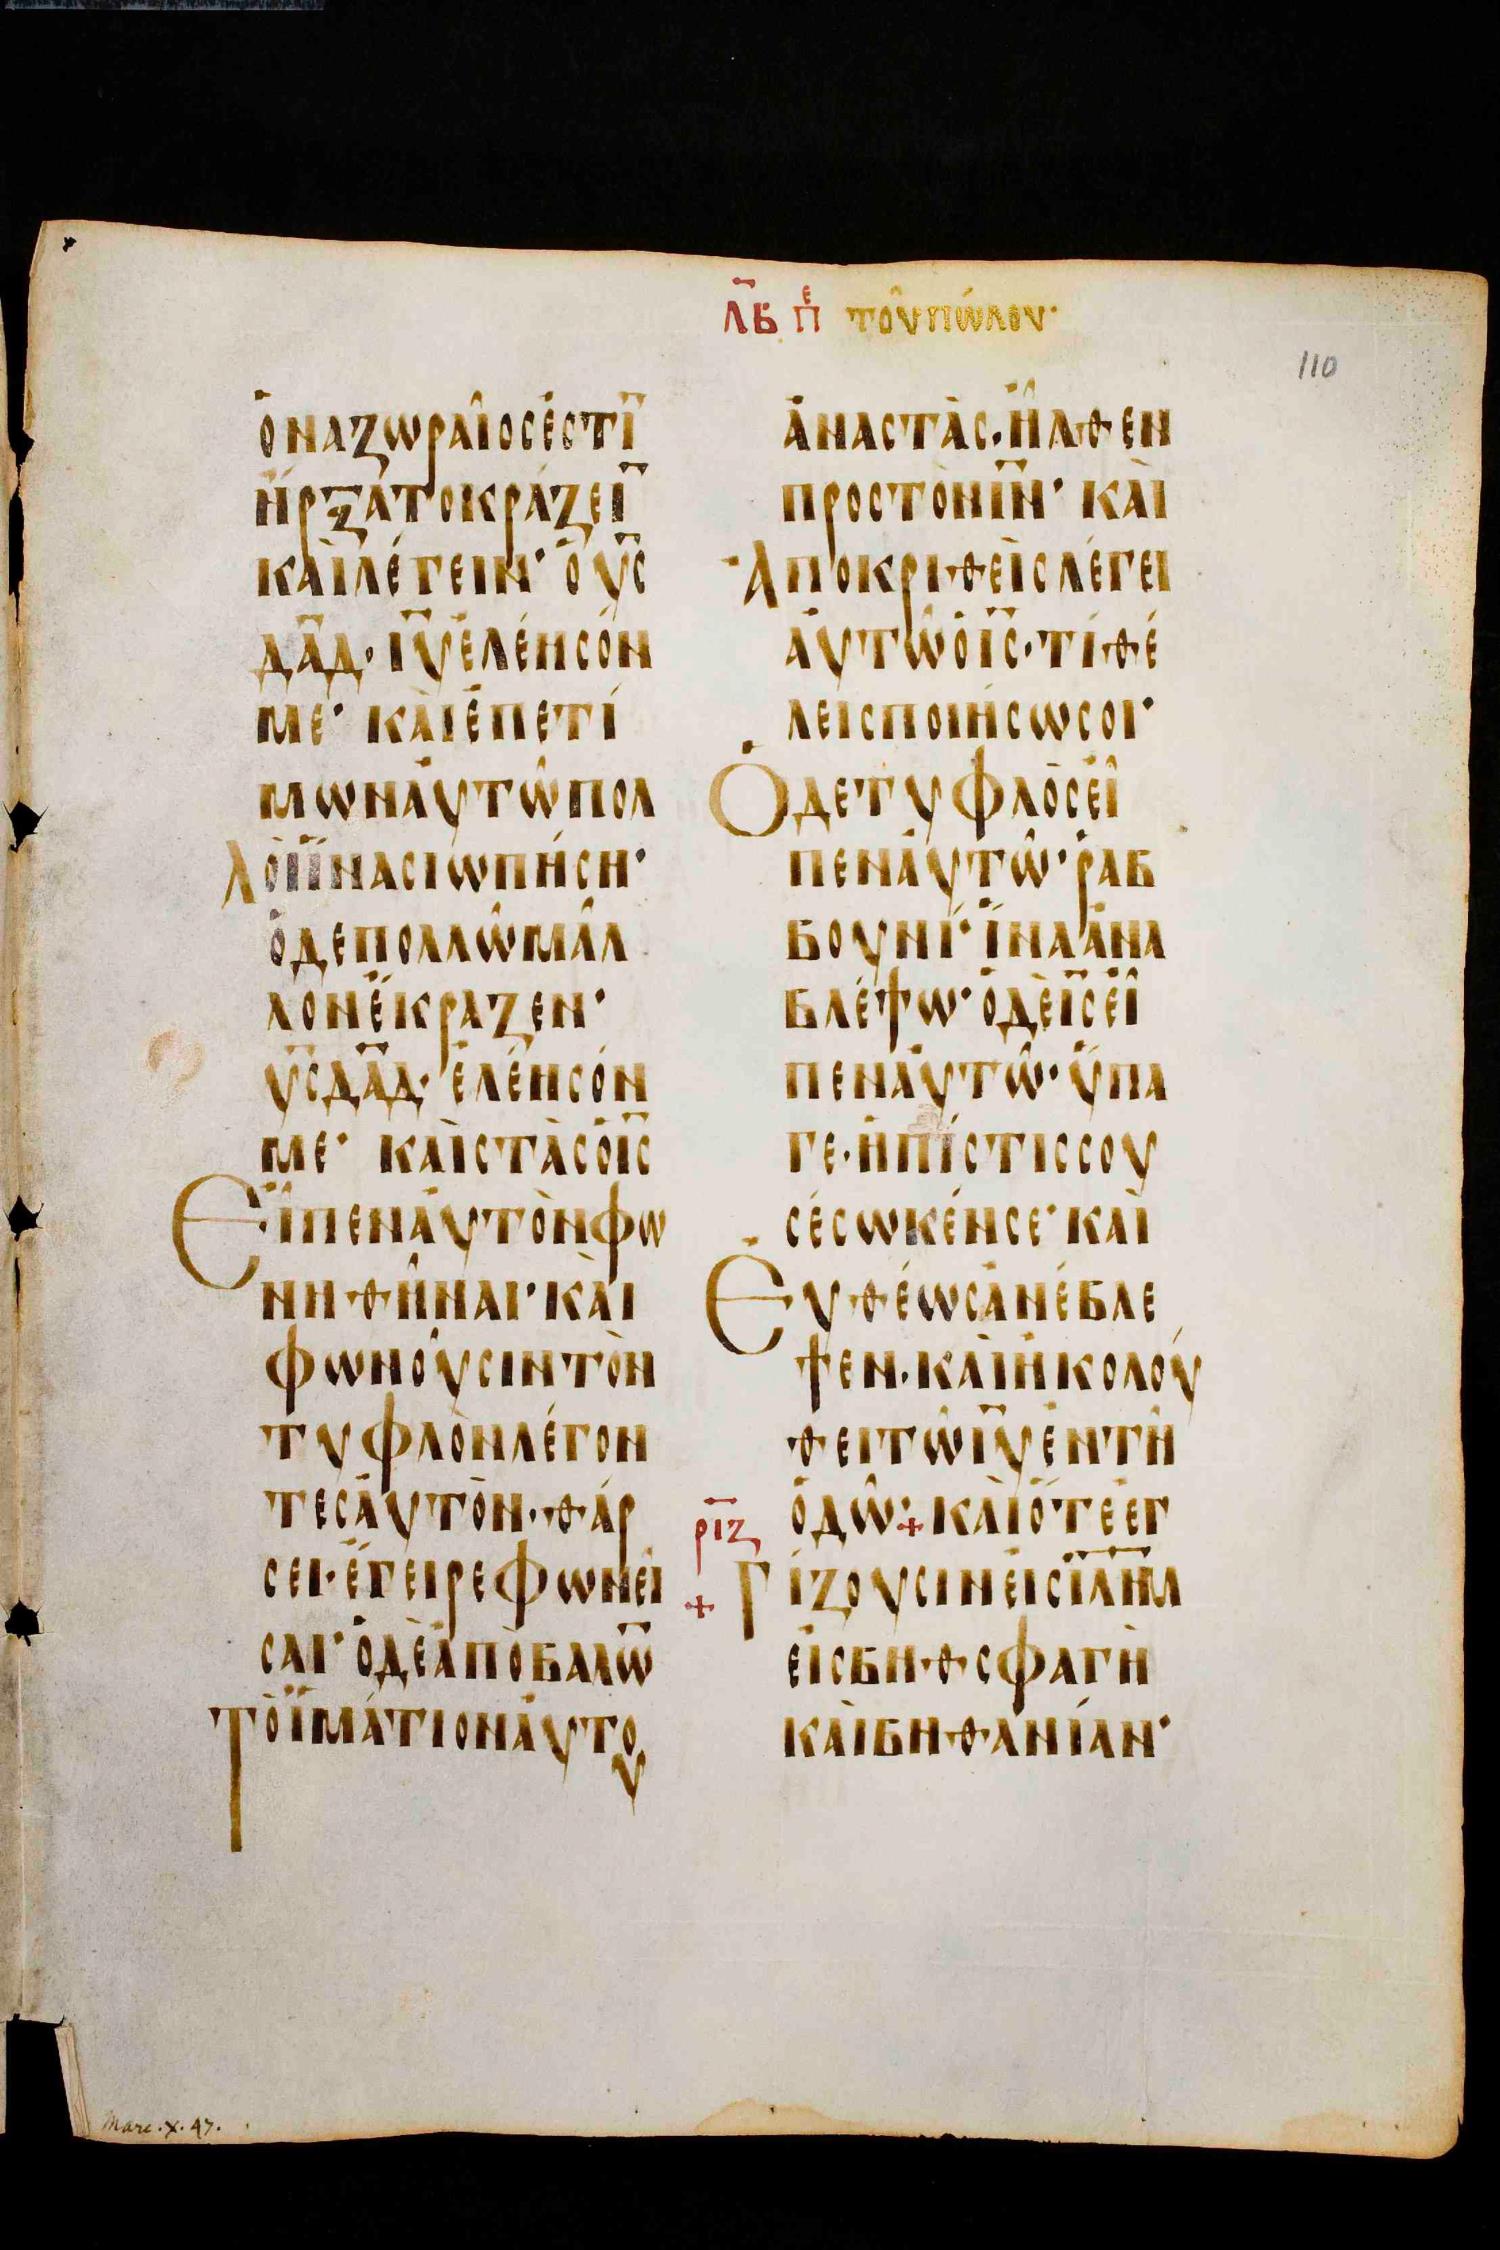 λβ πε τοῦ πώλου·
110
ὁ ναζωραῖος ἐστὶ
ἤρξατο κράζει
καὶ λέγειν· ὁ υς
δαδ· ιυ ἐλέησόν
με· καὶ ἐπετί
μων αὐτῶ πολ
λοὶ ἵνα σιωπήση·
ὁ δε πολλῶ μᾶλ
λον ἔκραζεν·
υς δαδ· ἐλέησόν
με· καὶ στὰς ὁ ις
Εἶπεν αὐτὸν φω
νηθῆναι· καὶ
φωνοῦσιν τὸν
τυφλὸν λέγον
τες αὐτὸν· θάρ
σει· ἔγειρε φωνεῖ
σαι· ὁ δὲ ἀποβαλὼ
Τὸ ἱμάτιον αὐτου
ἀναστὰς· ἦλθεν
προς τὸν ιν· καὶ
Ἀποκριθεὶς λέγει
αὐτῶ ὁ ις· τί θέ
λεις ποιήσω σοι·
Ὁ δε τυφλὸς εἶ
πεν αὐτῶ· ῥαβ
βουνί· ἵνα ἀνα
βλέψω· ὁ δὲ ις εἶ
πεν αὐτῶ· ὕπα
γε· ἡ πίστις σου
σέσωκέν σε· καὶ
Εὐθέως ἀνέβλε
ψεν· καὶ ἠκολού
θει τῶ ιυ ἐν τῆ
ὁδῶ· + καὶ ὅτε ἐγ
ριζ
+ Γίζουσιν εἰς ιλημ
εἰς βηθσφαγὴ
καὶ βηθανίαν·
Marc. X. 47.